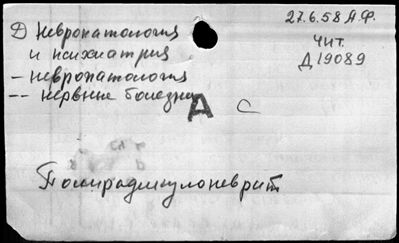 Д) Невропатология
и психиатрия
— невропатология
-- нервные болезни
27.6.58 А.Ф.
Чит.
Д 19089
А С
Полирадикулоневрит